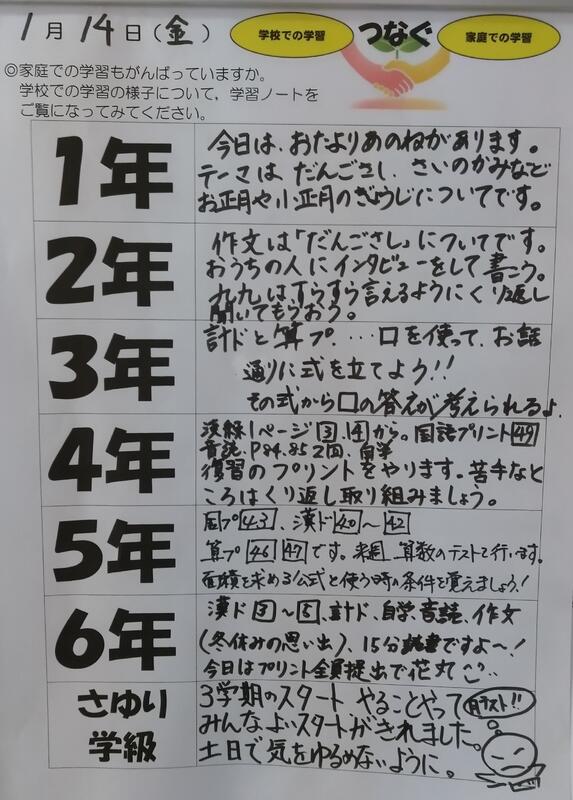 1月14日(金)
学校での学習
つなぐ
家庭での学習
◎家庭での学習もがんばっていますか。
学校での学習の様子について,学習ノートを
ご覧になってみてください。
1年
今日は、おたよりあのねがあります。
テーマは だんごさし、さいのかみなど
お正月や小正月のぎょうじについてです。
2年
作文は「だんごさし」についてです。
おうちの人にインタビューをして書こう。
九九はすらすら言えるようにくり返し
聞いてもらおう。
3年
計ドと算プ…口を使って、お話
通りに式を立てよう!!
その式から口の答えが考えられるよ。
4年
漢練1ページ 3、4から。国語プリント49
音読、P84.85 2回、自学
復習のプリントをやります。苦手なと
ころはくり返し取り組みましょう。
5年
国プ43、漢ド40～42
算プ46 47です。来週、算数のテストを行います。
面積を求める公式と使う時の条件を覚えましょう!
6年
漢ド3～5、計ド、自学、音読、作文
(冬休みの思い出)、15分読書ですよ～!
今日はプリント全員提出で花丸
さゆり
学級
3学期のスタート やることやって
みんなよいスタートがきれました。
土日で気をゆるめないように。
テスト!!